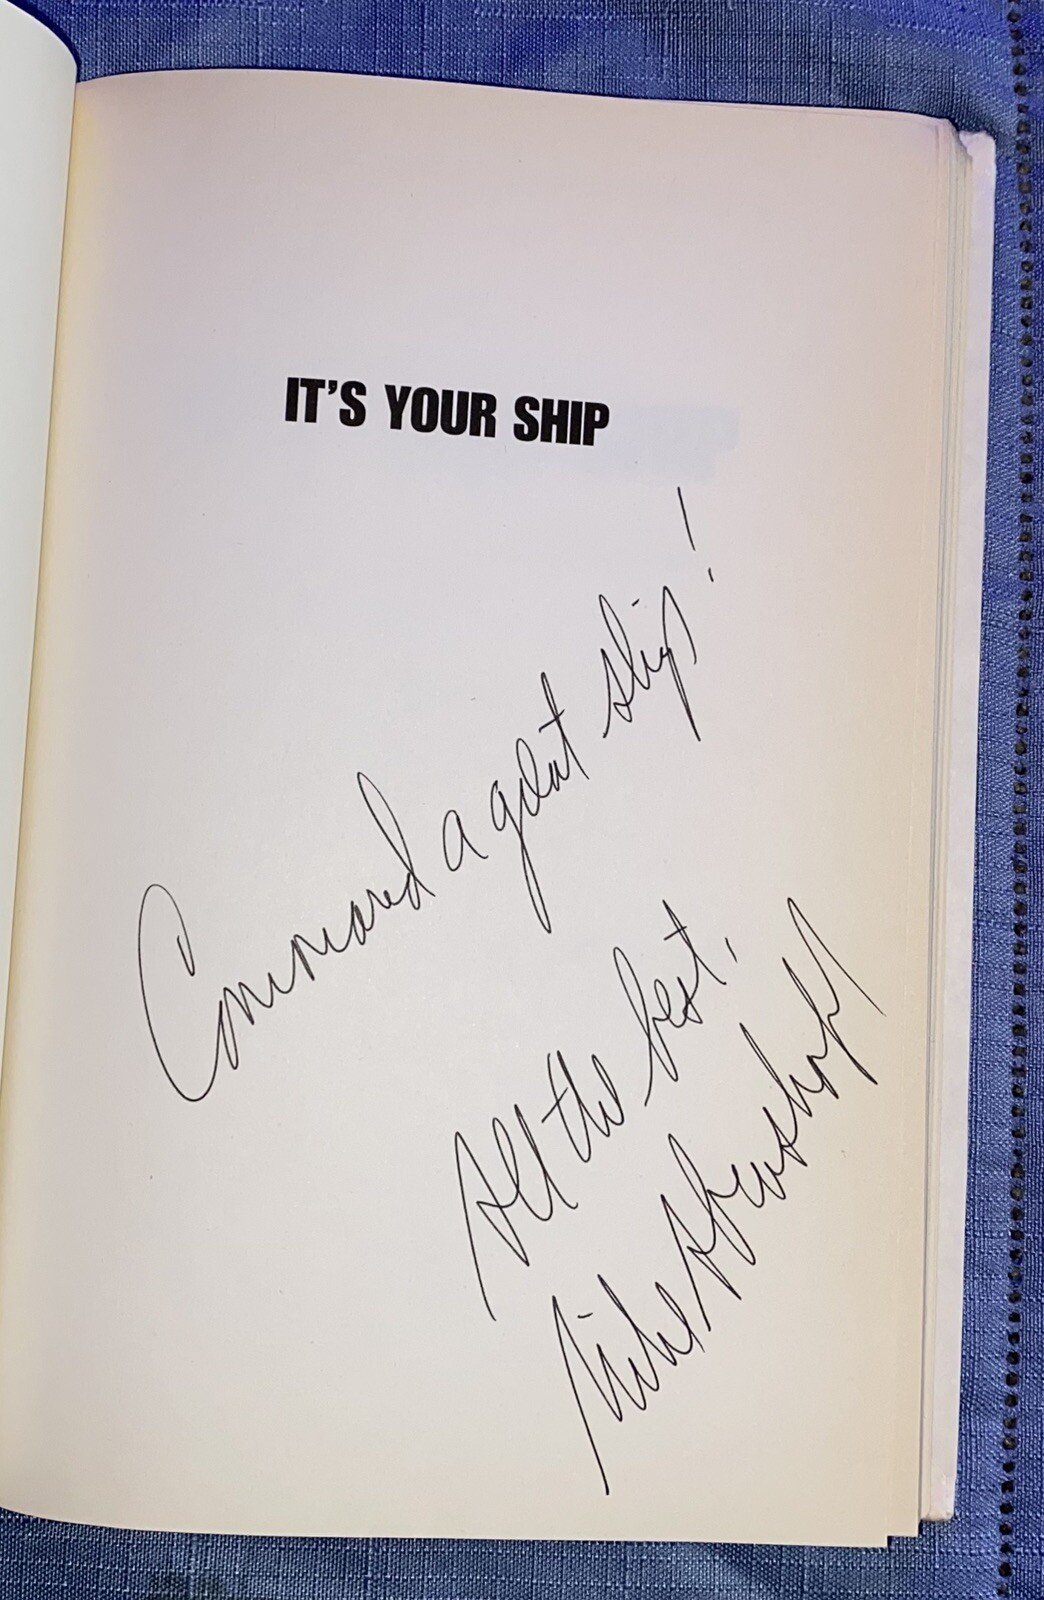 IT'S YOUR SHIP
Command a great ship!
All the best,
Mike Abrashoff